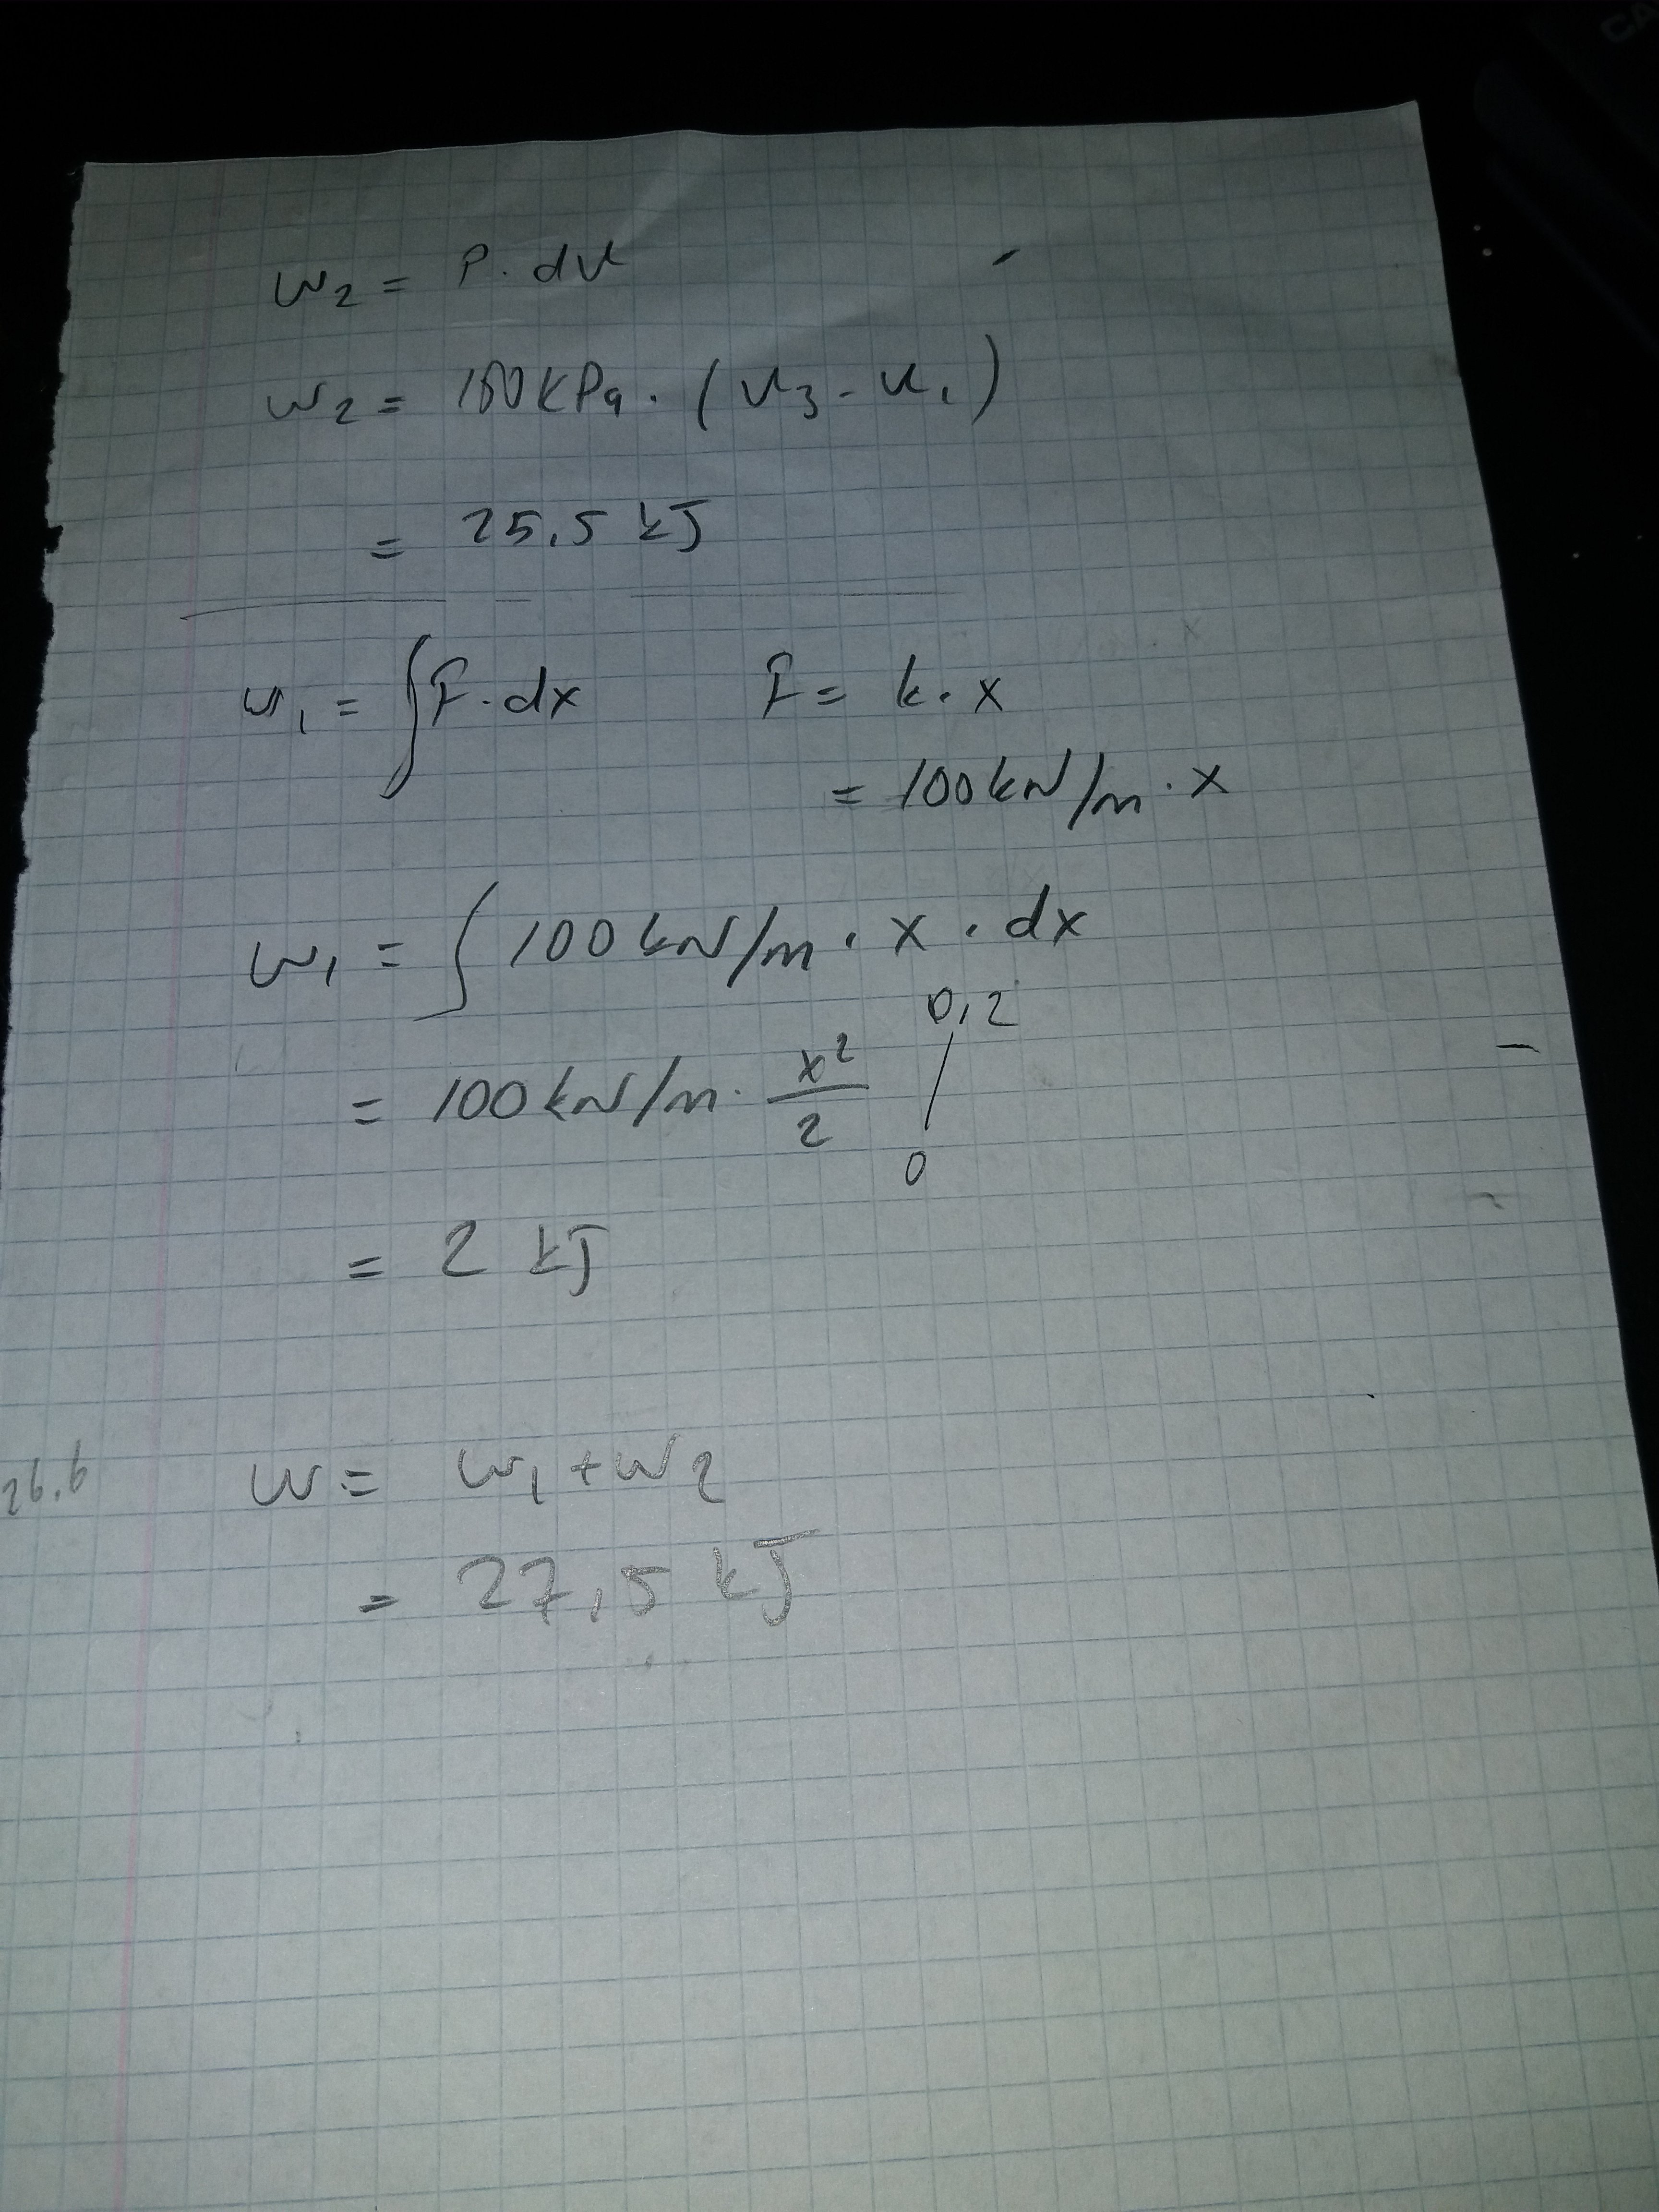 W₂ = P · dV
W₂ = 150 kPa · (V₃ - V₁)
= 25,5 kJ
W₁ = ∫ F · dx F = k · x
= 100 kN/m · x
W₁ = ∫ 100 kN/m · x · dx
0,2
= 100 kN/m · x²/2 /
0
= 2 kJ
26.6 W = W₁ + W₂
= 27,5 kJ